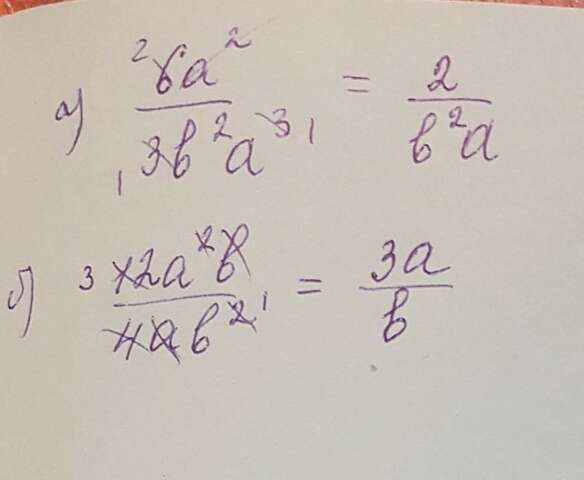 а) ²6a² / ₁3b²a³ ₁ = 2 / b²a
б) 3 12a²b / 4ab² ₁ = 3a / b